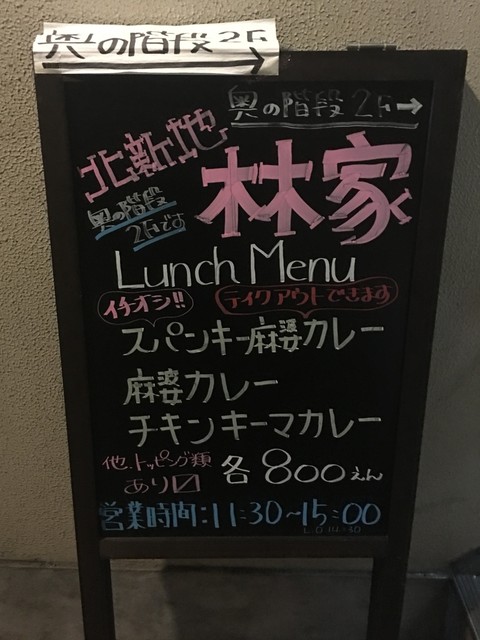 奥の階段2F→
奥の階段2F→
北新地
林家
奥の階段
2Fです
Lunch Menu
イチオシ!!
テイクアウトできます
スパンキー麻婆カレー
麻婆カレー
チキンキーマカレー
他.トッピング類
あり〼
各800えん
営業時間:11:30~15:00